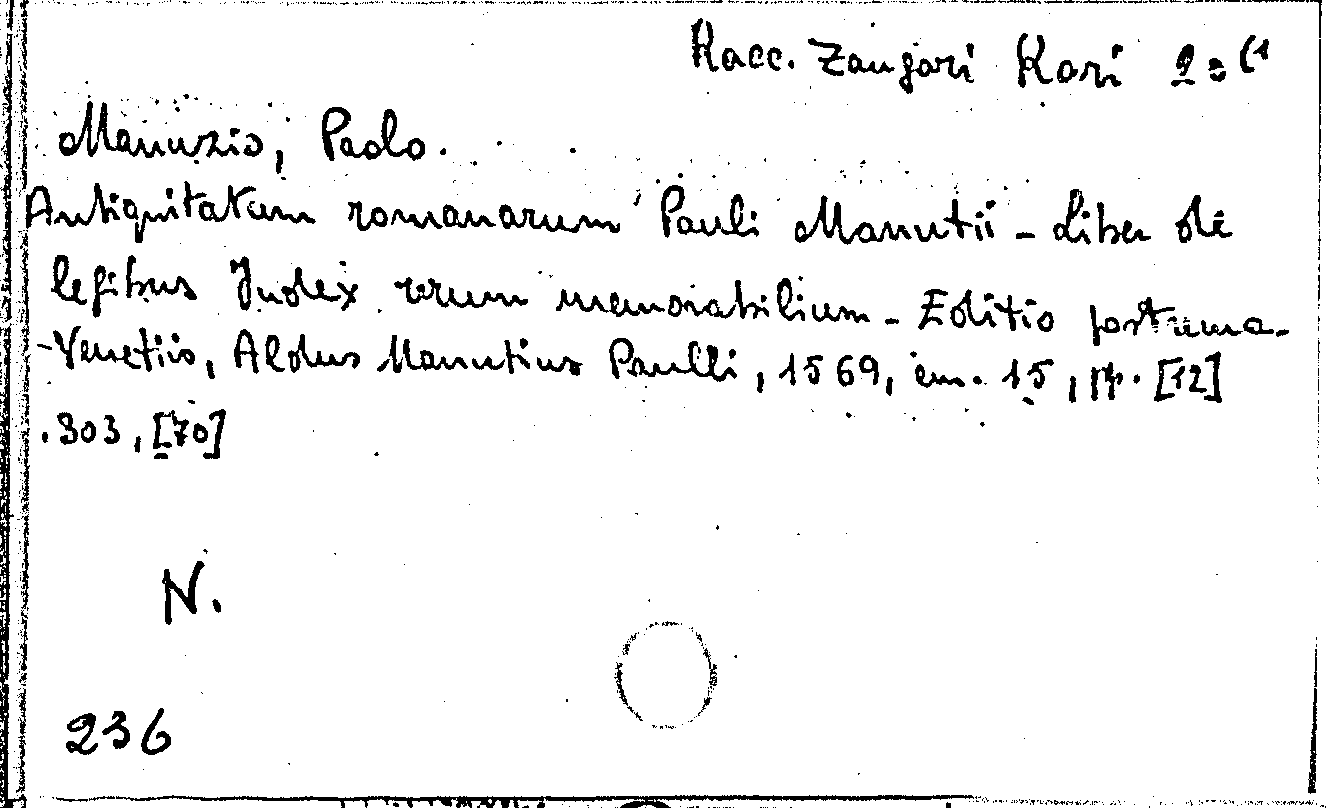 Racc. Zangari Rari 2 (1
Manuzio, Paolo.
Antiquitatum romanarum Pauli Manutii - Liber de
legibus Index rerum memorabilium - Editio postuma -
- Venetiis, Aldus Manutius Paulli, 1569, cm. 15, pp. [12]
. 303, [70]
N.
236